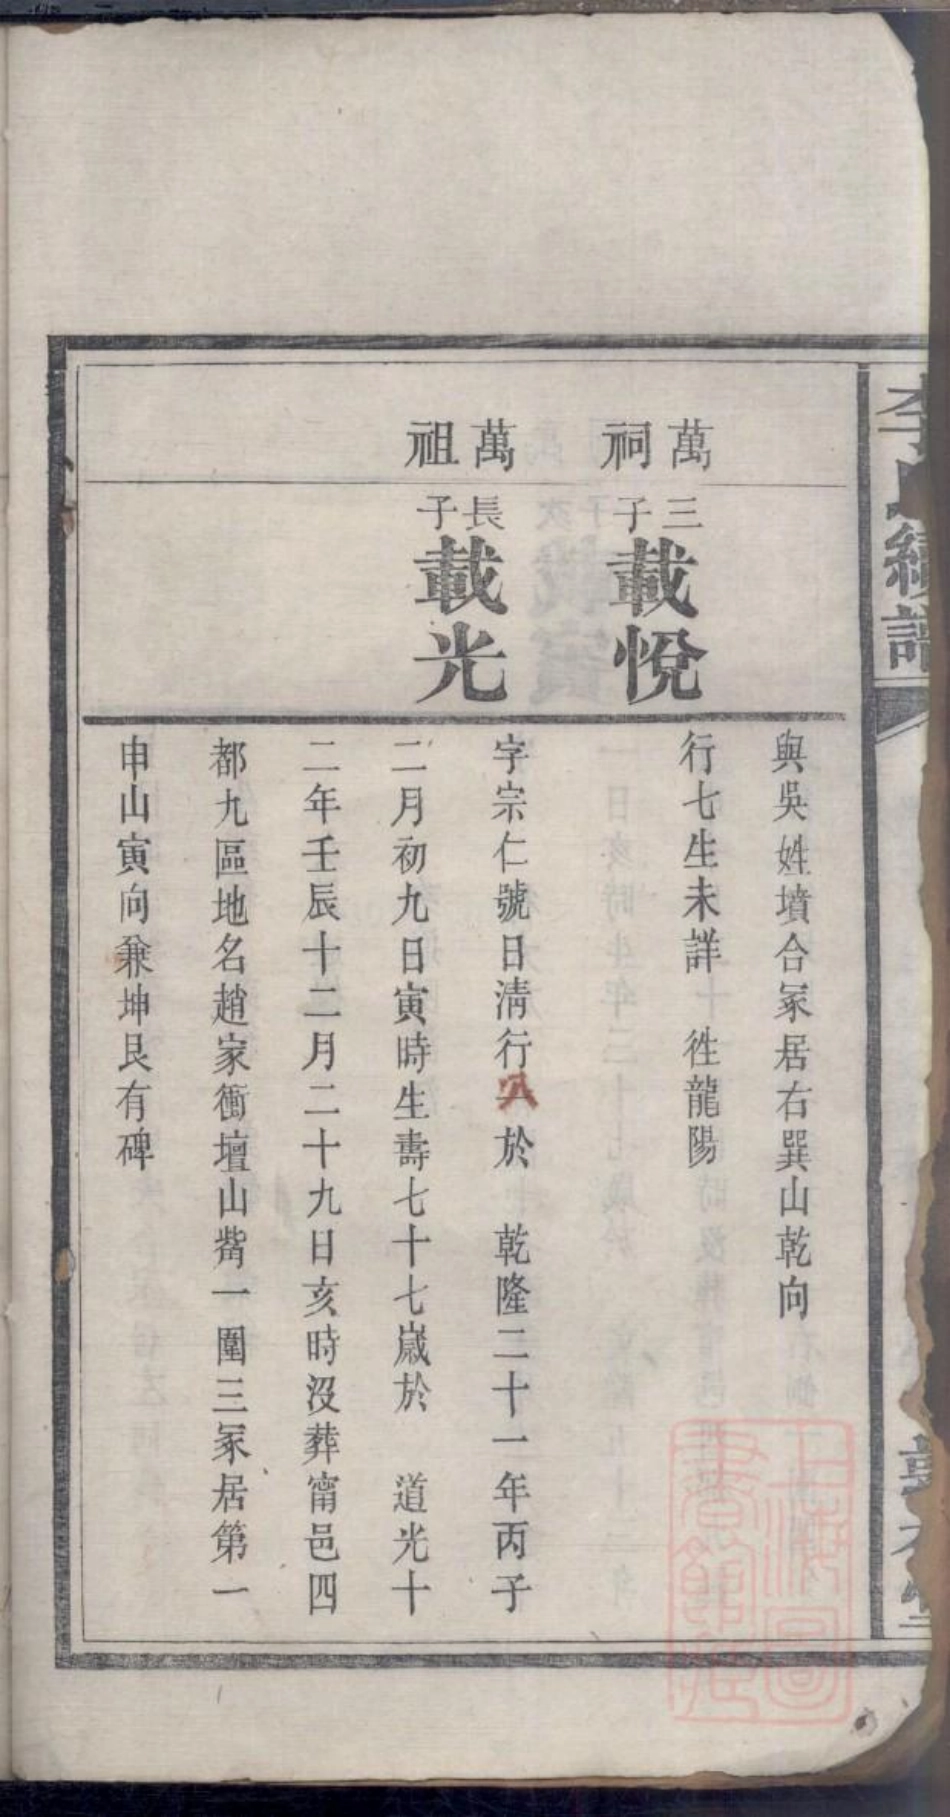 李氏續譜
萬祠
三子載悅
與吳姓墳合冢居右巽山乾向
行七生未詳 徃龍陽
萬祖
長子載光
字宗仁號日清行八於 乾隆二十一年丙子
二月初九日寅時生壽七十七歲於 道光十
二年壬辰十二月二十九日亥時沒葬甯邑四
都九區地名趙家衝壇山觜一圍三冢居第一
申山寅向兼坤艮有碑
上海圖書館藏